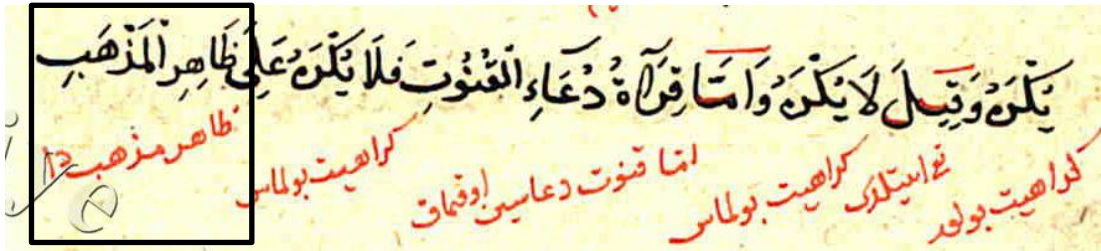 يُكْرَهُ وَقِيلَ لَا يُكْرَهُ وَاَمَّا قِرَآةُ دُعَاءِ الْقُنُوتِ فَلَا يُكْرَهُ عَلَى ظَاهِرِ الْمَذْهَبِ
كراهيت بولور ايتلدى كراهيت بولماس امّا قنوت دعاسين اوقماق كراهيت بولماس ظاهر مذهب دا